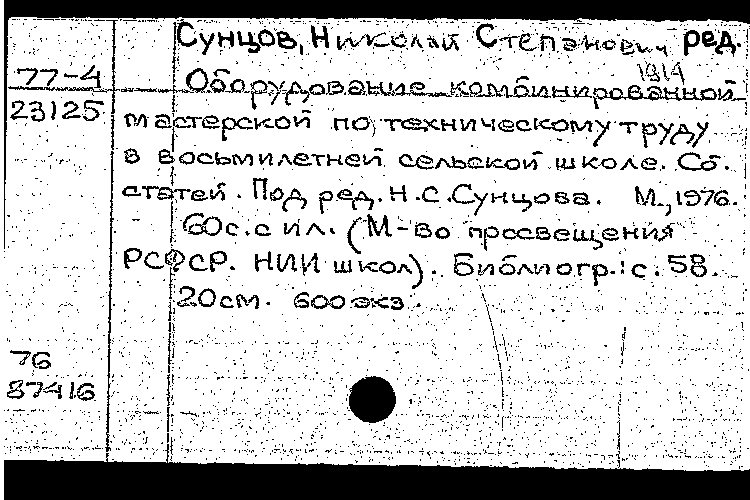 Сунцов, Николай Степанович ред.
1914
77-4 Оборудование комбинированной
23125 мастерской по техническому труду
в восьмилетней сельской школе. Сб.
статей. Под ред. Н.С.Сунцова. М., 1976.
60с. с ил. (М-во просвещения
РСФСР. НИИ школ). Библиогр.: с. 58.
20см. 600экз.
76
87416